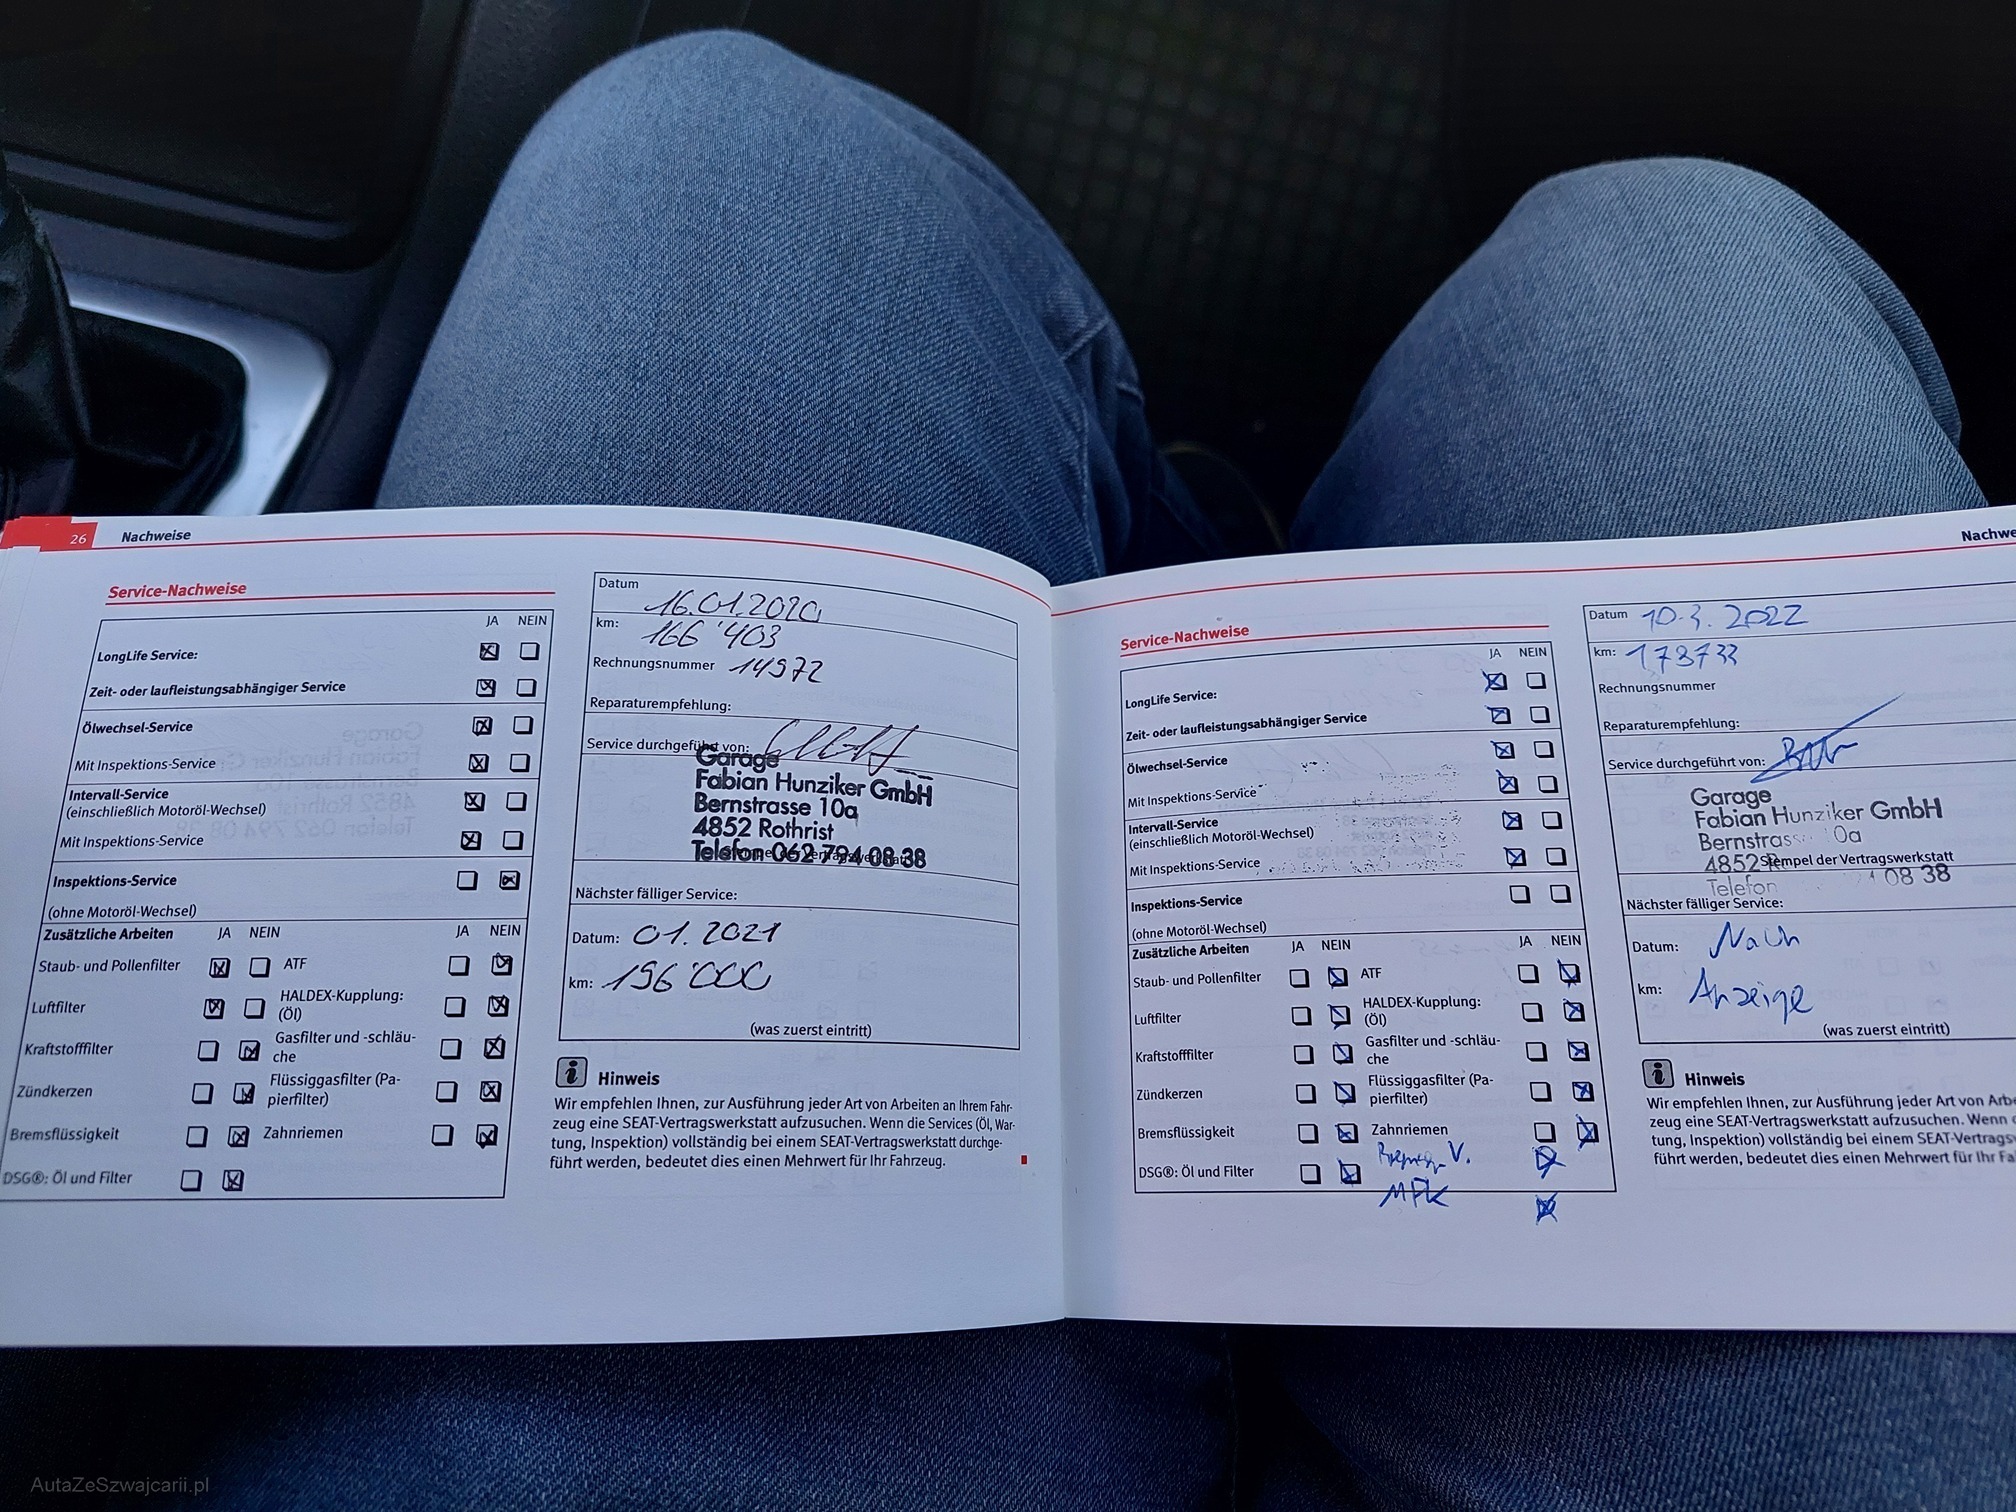 26 Nachweise
Service-Nachweise
JA NEIN
LongLife Service:
Zeit- oder laufleistungsabhängiger Service
Ölwechsel-Service
Mit Inspektions-Service
Intervall-Service
(einschließlich Motoröl-Wechsel)
Mit Inspektions-Service
Inspektions-Service
(ohne Motoröl-Wechsel)
Zusätzliche Arbeiten JA NEIN JA NEIN
Staub- und Pollenfilter ATF
Luftfilter HALDEX-Kupplung:
(Öl)
Kraftstofffilter Gasfilter und -schläu-
che
Zündkerzen Flüssiggasfilter (Pa-
pierfilter)
Bremsflüssigkeit Zahnriemen
DSG®: Öl und Filter
Datum 16.01.2020
km: 166'403
Rechnungsnummer 14972
Reparaturempfehlung:
Service durchgeführt von:
Garage
Fabian Hunziker GmbH
Bernstrasse 10a
4852 Rothrist
Telefon 062 794 08 38
Nächster fälliger Service:
Datum: 01.2021
km: 196'000
(was zuerst eintritt)
Hinweis
Wir empfehlen Ihnen, zur Ausführung jeder Art von Arbeiten an Ihrem Fahr-
zeug eine SEAT-Vertragswerkstatt aufzusuchen. Wenn die Services (Öl, War-
tung, Inspektion) vollständig bei einem SEAT-Vertragswerkstatt durchge-
führt werden, bedeutet dies einen Mehrwert für Ihr Fahrzeug.
Nachwe
Service-Nachweise
JA NEIN
LongLife Service:
Zeit- oder laufleistungsabhängiger Service
Ölwechsel-Service
Mit Inspektions-Service
Intervall-Service
(einschließlich Motoröl-Wechsel)
Mit Inspektions-Service
Inspektions-Service
(ohne Motoröl-Wechsel)
Zusätzliche Arbeiten JA NEIN JA NEIN
Staub- und Pollenfilter ATF
Luftfilter HALDEX-Kupplung:
(Öl)
Kraftstofffilter Gasfilter und -schläu-
che
Zündkerzen Flüssiggasfilter (Pa-
pierfilter)
Bremsflüssigkeit Zahnriemen
DSG®: Öl und Filter
MFK
Datum 10.3.2022
km: 178733
Rechnungsnummer
Reparaturempfehlung:
Service durchgeführt von:
Garage
Fabian Hunziker GmbH
Bernstrass 10a
4852
Stempel der Vertragswerkstatt
Telefon 08 38
Nächster fälliger Service:
Datum: Nach
km: Anzeige
(was zuerst eintritt)
Hinweis
Wir empfehlen Ihnen, zur Ausführung jeder Art von Arbe
zeug eine SEAT-Vertragswerkstatt aufzusuchen. Wenn
tung, Inspektion) vollständig bei einem SEAT-Vertrags
führt werden, bedeutet dies einen Mehrwert für Ihr Fa
AutaZeSzwajcarii.pl